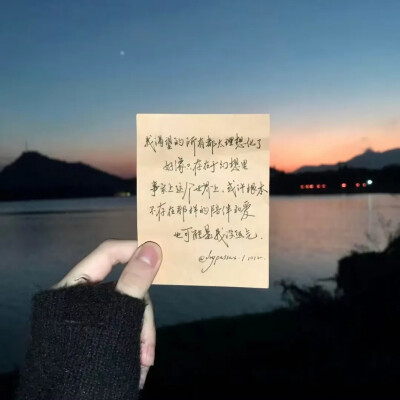 我渴望的所有都太理想化了
好像只存在于幻想里
事实上这个世界上,或许根本
不存在那样的陪伴和爱
也可能是我没遇见.